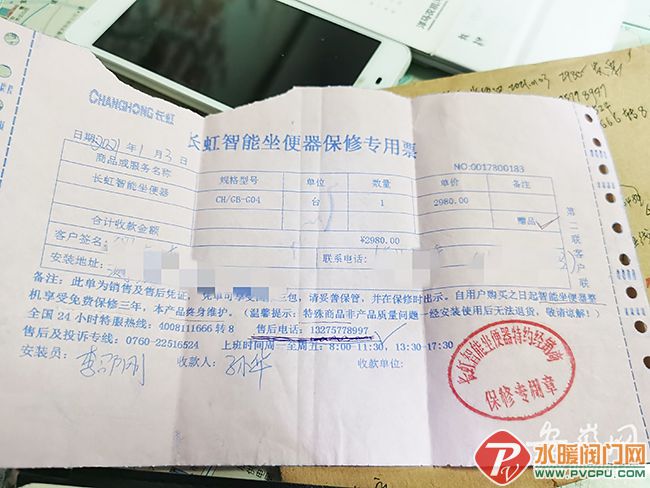 CHANGHONG 长虹
长虹智能坐便器保修专用票
日期 2021 年 1 月 3 日
NO:0017800183
商品或服务名称 规格型号 单位 数量 单价 备注
长虹智能坐便器 CH/GB-G04 台 1 2980.00
赠品
合计收款金额 ¥2980.00
客户签名: 联系电话:
安装地址:
第二联客户联
备注: 此单为销售及售后凭证, 凭单可享受 包, 请妥善保管, 并在保修时出示。自用户购买之日起智能坐便器整
机享受免费保修三年, 本产品终身维护。(温馨提示: 特殊商品非产品质量问题一经安装使用后无法退货, 敬请谅解!)
全国 24 小时特服热线: 4008111666 转 8 售后电话: 13275778997
售后及投诉专线: 0760-22516524 上班时间周一至周五: 8:00-11:30, 13:30-17:30
安装员: 收款人: 孙华 收款单位:
长虹智能坐便器特约经销商
保修专用章
安徽网
水暖阀门网
WWW.PVCPU.COM